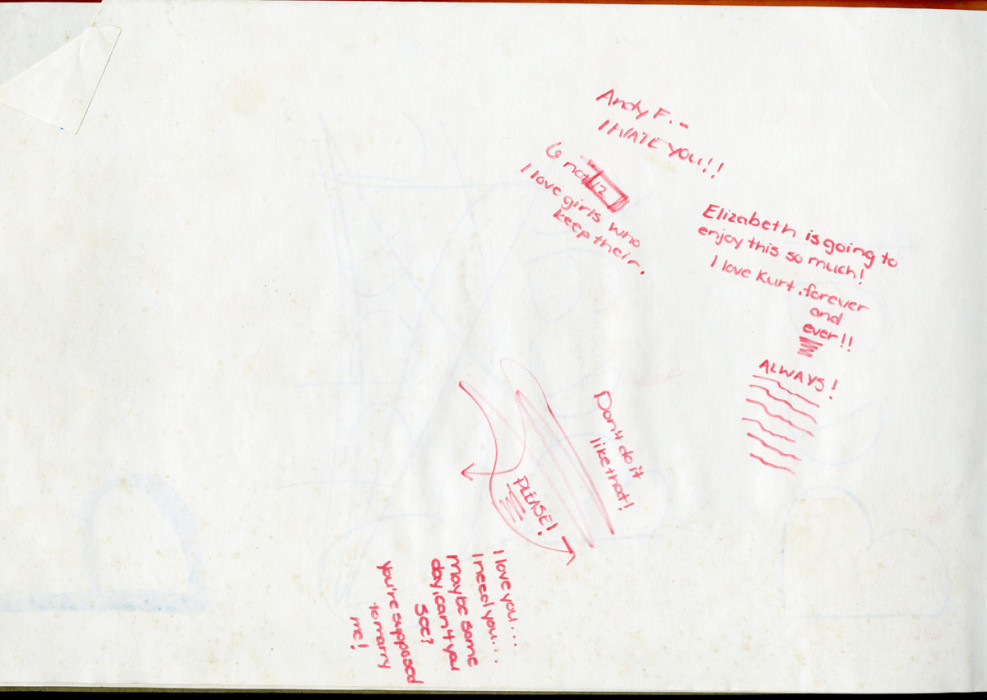 Andy F. -
I HATE YOU!!
not
I love girls who
keep their.
Elizabeth is going to
enjoy this so much!
I love Kurt. forever
and
ever!!
ALWAYS!
Don't do it
like that!
PLEASE!
I love you...
I need you...
maybe some
day, can't you
see?
you're supposed
to marry
me!